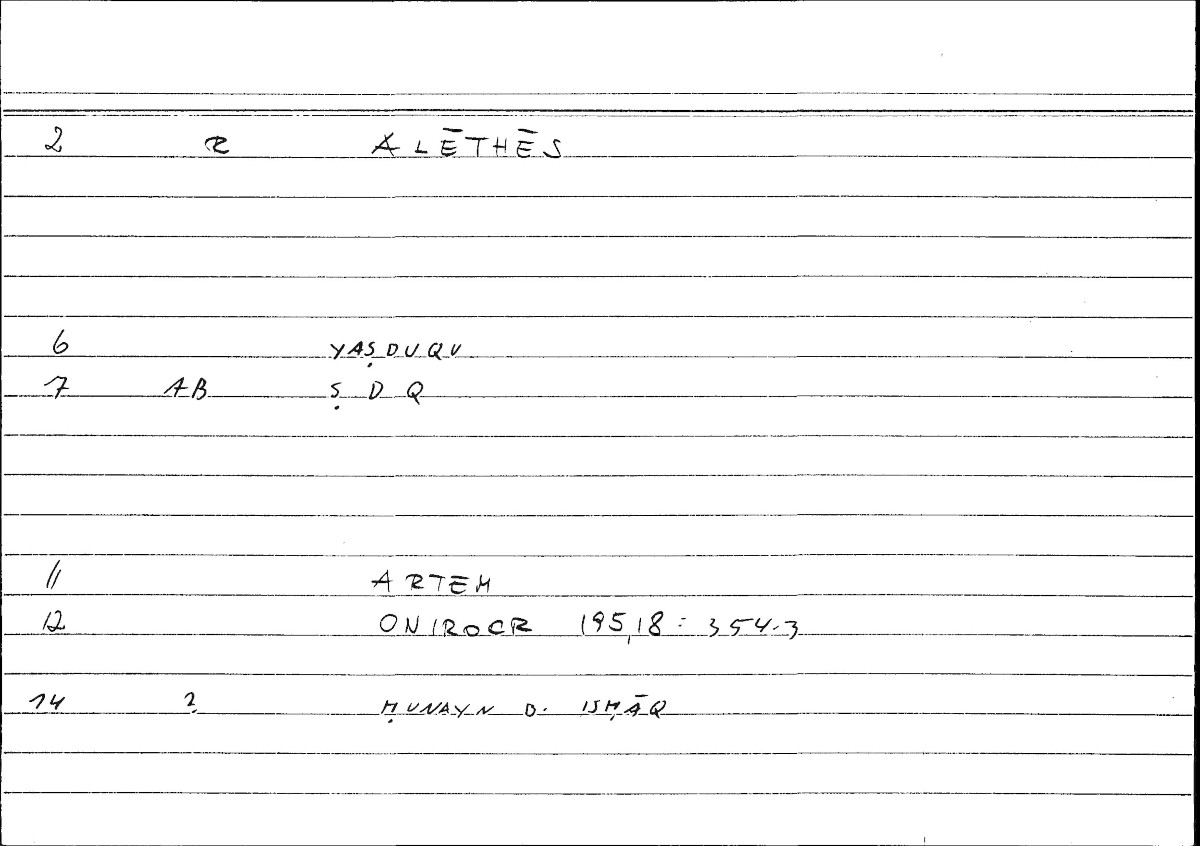 2 R ALĒTHĒS
6 YAṢDUQU
7 AB Ṣ D Q
11 ARTEM
12 ONIROCR 195,18 : 354.3
14 2 ḤUNAYN B. ISḤĀQ